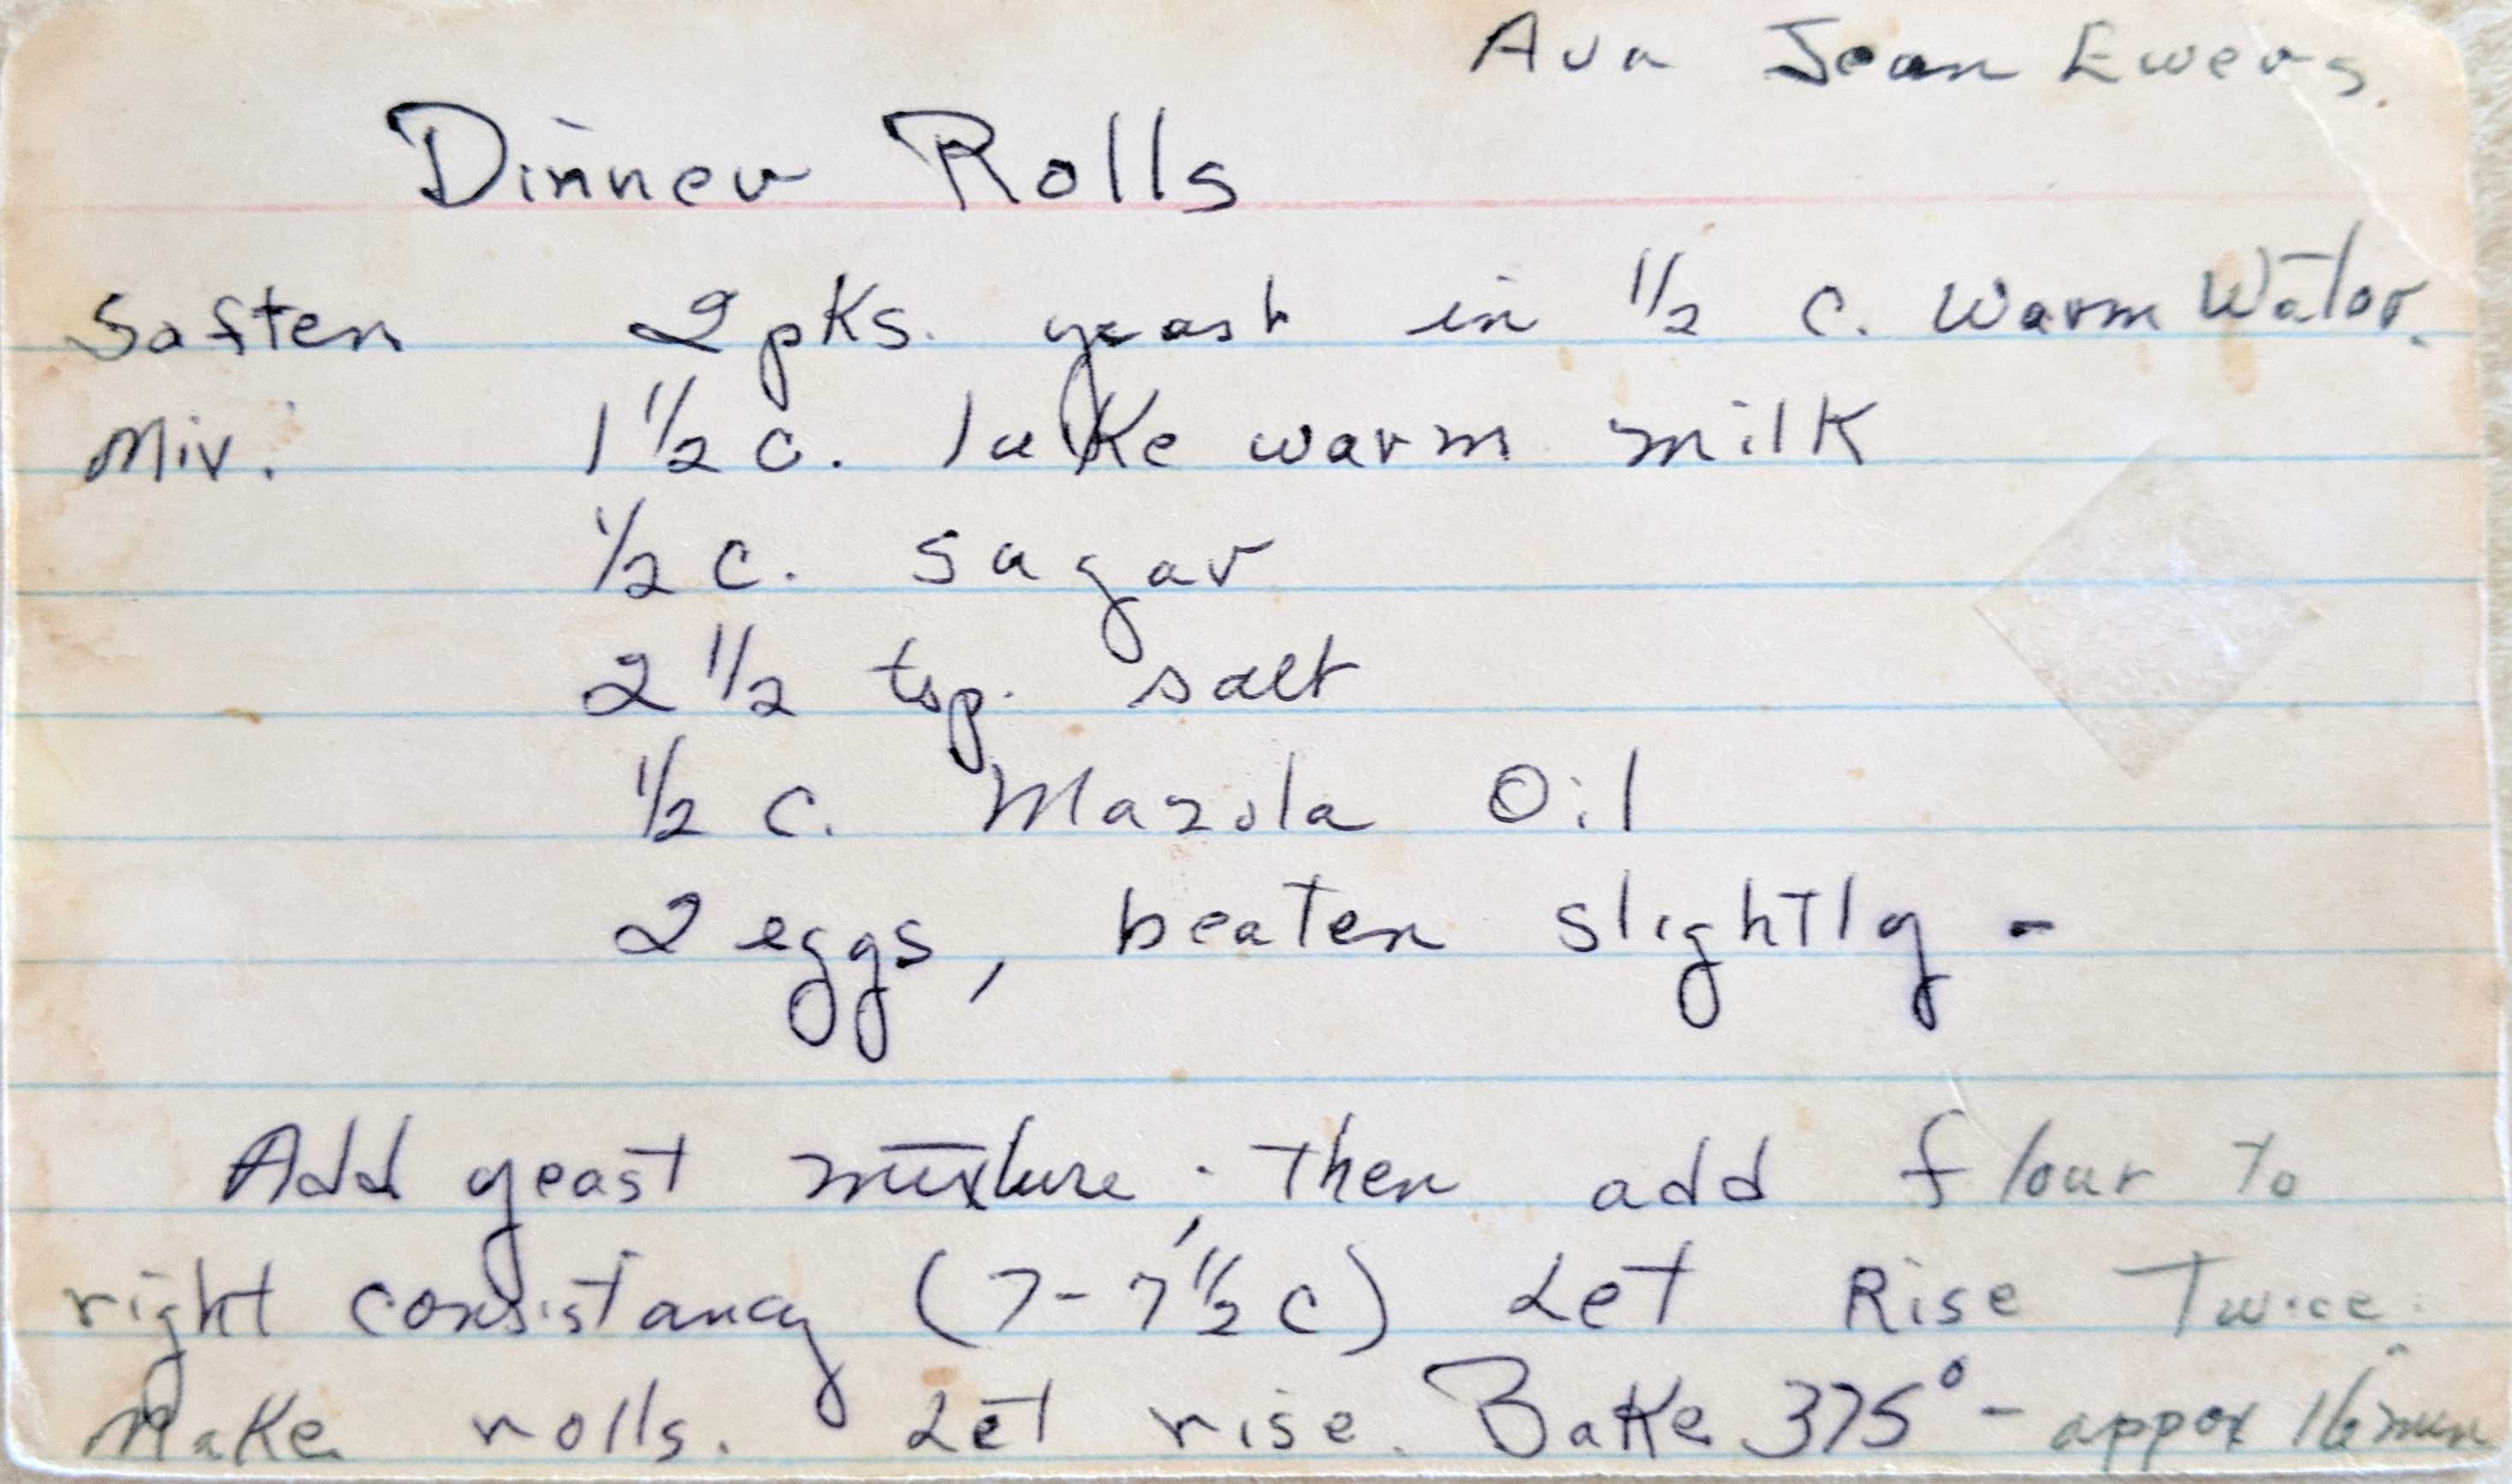 Ava Jean Ewers.
Dinner Rolls
Soften 2 pks. yeast in 1/2 c. Warm Water.
Mix: 1 1/2 c. luke warm milk
1/2 c. sugar
2 1/2 tsp. salt
1/2 c. Mazola Oil
2 eggs, beaten slightly -
Add yeast mixture; Then add flour to
right consistancy (7-7 1/2 c) Let Rise Twice.
Make rolls. Let rise. Bake 375° - appox 16 min